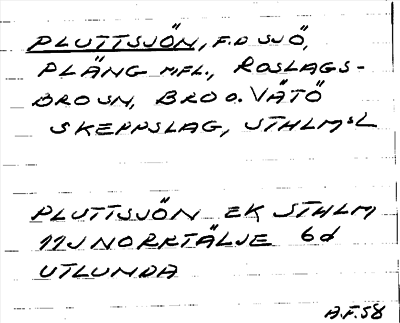 PLUTTSJÖN, F.D SJÖ,
PLÄNG M.FL., ROSLAGS-
BRO SN, BRO O. VÄTÖ
SKEPPSLAG, STHLMSL
PLUTTSJÖN EK STHLM
11J NORRTÄLJE 6d
UTLUNDA
A.F.58